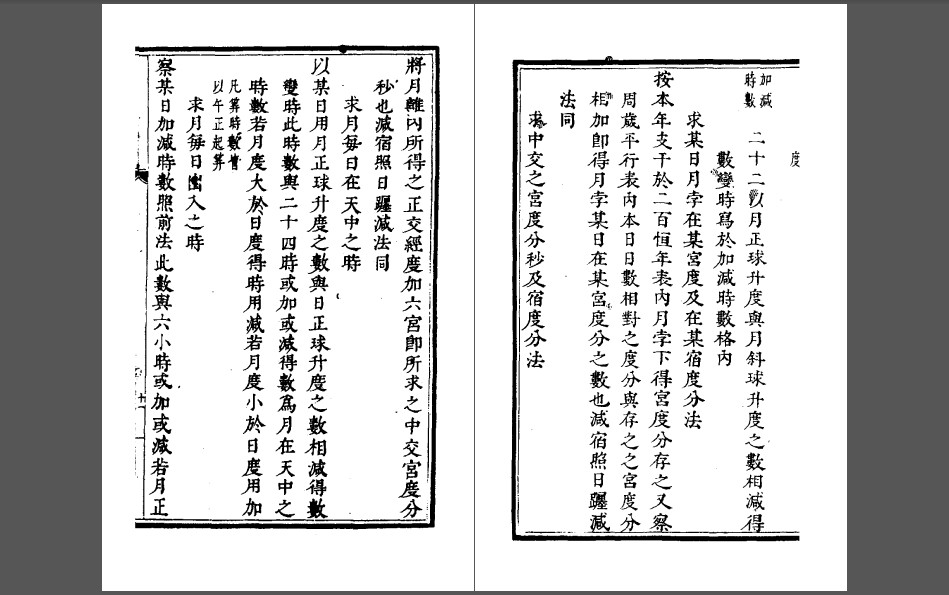 度
加減
時數
二十二以月正球升度與月斜球升度之數相減得
數變時寫於加減時數格內
求某日月孛在某宮度及在某宿度分法
按本年支干於二百恒年表內月孛下得宮度分存之又察
周歲平行表內本日日數相對之度分與存之之宮度分
相加卽得月孛某日在某宮度分之數也減宿照日躔減
法同
求中交之宮度分秒及宿度分法
將月離內所得之正交經度加六宮卽所求之中交宮度分
秒也減宿照日躔減法同
求月每日在天中之時
以某日用月正球升度之數與日正球升度之數相減得數
變時此時數與二十四時或加或減得數為月在天中之
時數若月度大於日度得時用減若月度小於日度用加
凡算時數皆
以午正起算
求月每日出入之時
察某日加減時數照前法此數與六小時或加或減若月正